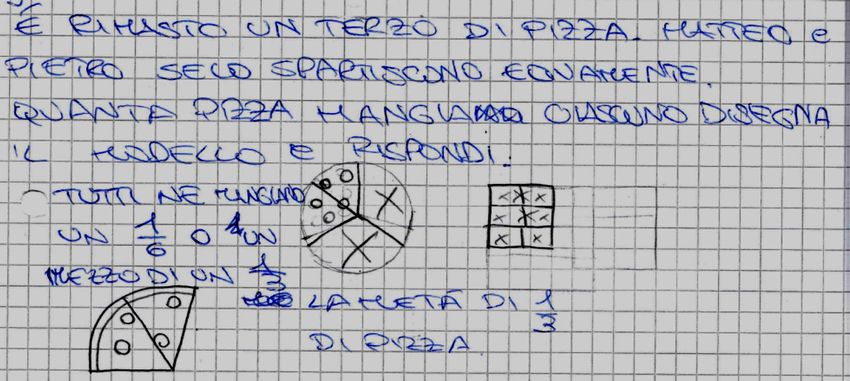 È RIMASTO UN TERZO DI PIZZA. MATTEO e
PIETRO SELO SPARTISCONO EQUAMENTE.
QUANTA PIZZA MANGIANO CIASCUNO DISEGNA
IL MODELLO E RISPONDI.
TUTTI NE MANGIANO
UN 1/6 O UN
MEZZO DI UN 1/3
LA METÁ DI 1/3
DI PIZZA.